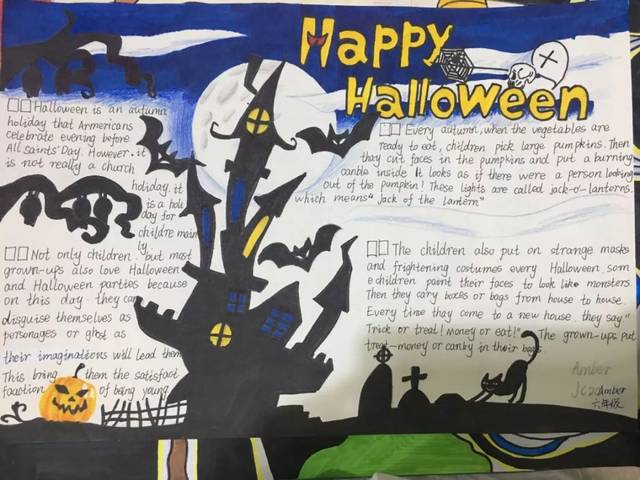 Happy
Halloween
□□Halloween is an autumn
holiday that Armericans
celebrate evening before
All Saints' Day. However, it
is not really a church
holiday. it
is a holi
day for
childre main
ly.
□□Not only children. but most
grown-ups also love Halloween
and Halloween parties because
on this day they can
disguise themselves as
personages or ghost as
their imaginations will lead them
This bring them the satisfact
faaction of being young
□□ Every autumn, when the vegetables are
ready to eat, children pick large pumpkins. Then
thay cut faces in the pumpkins and put a burning
canble inside It looks as if there were a person looking
out of the pumpkin! These lights are called jack-o'-lanterns,
which means" Jack of the lantern"
□□ The children also put on strange masks
and frightening costumes every Halloween. som
e children paint their faces to look like monsters.
Then they cary boxes or bags from house to house.
Every time thay come to a new house they say,"
Trick or treat! money or eat!" The grown-ups put
treat-money or canby in their bags
Amber
JC2 Amber
六年级